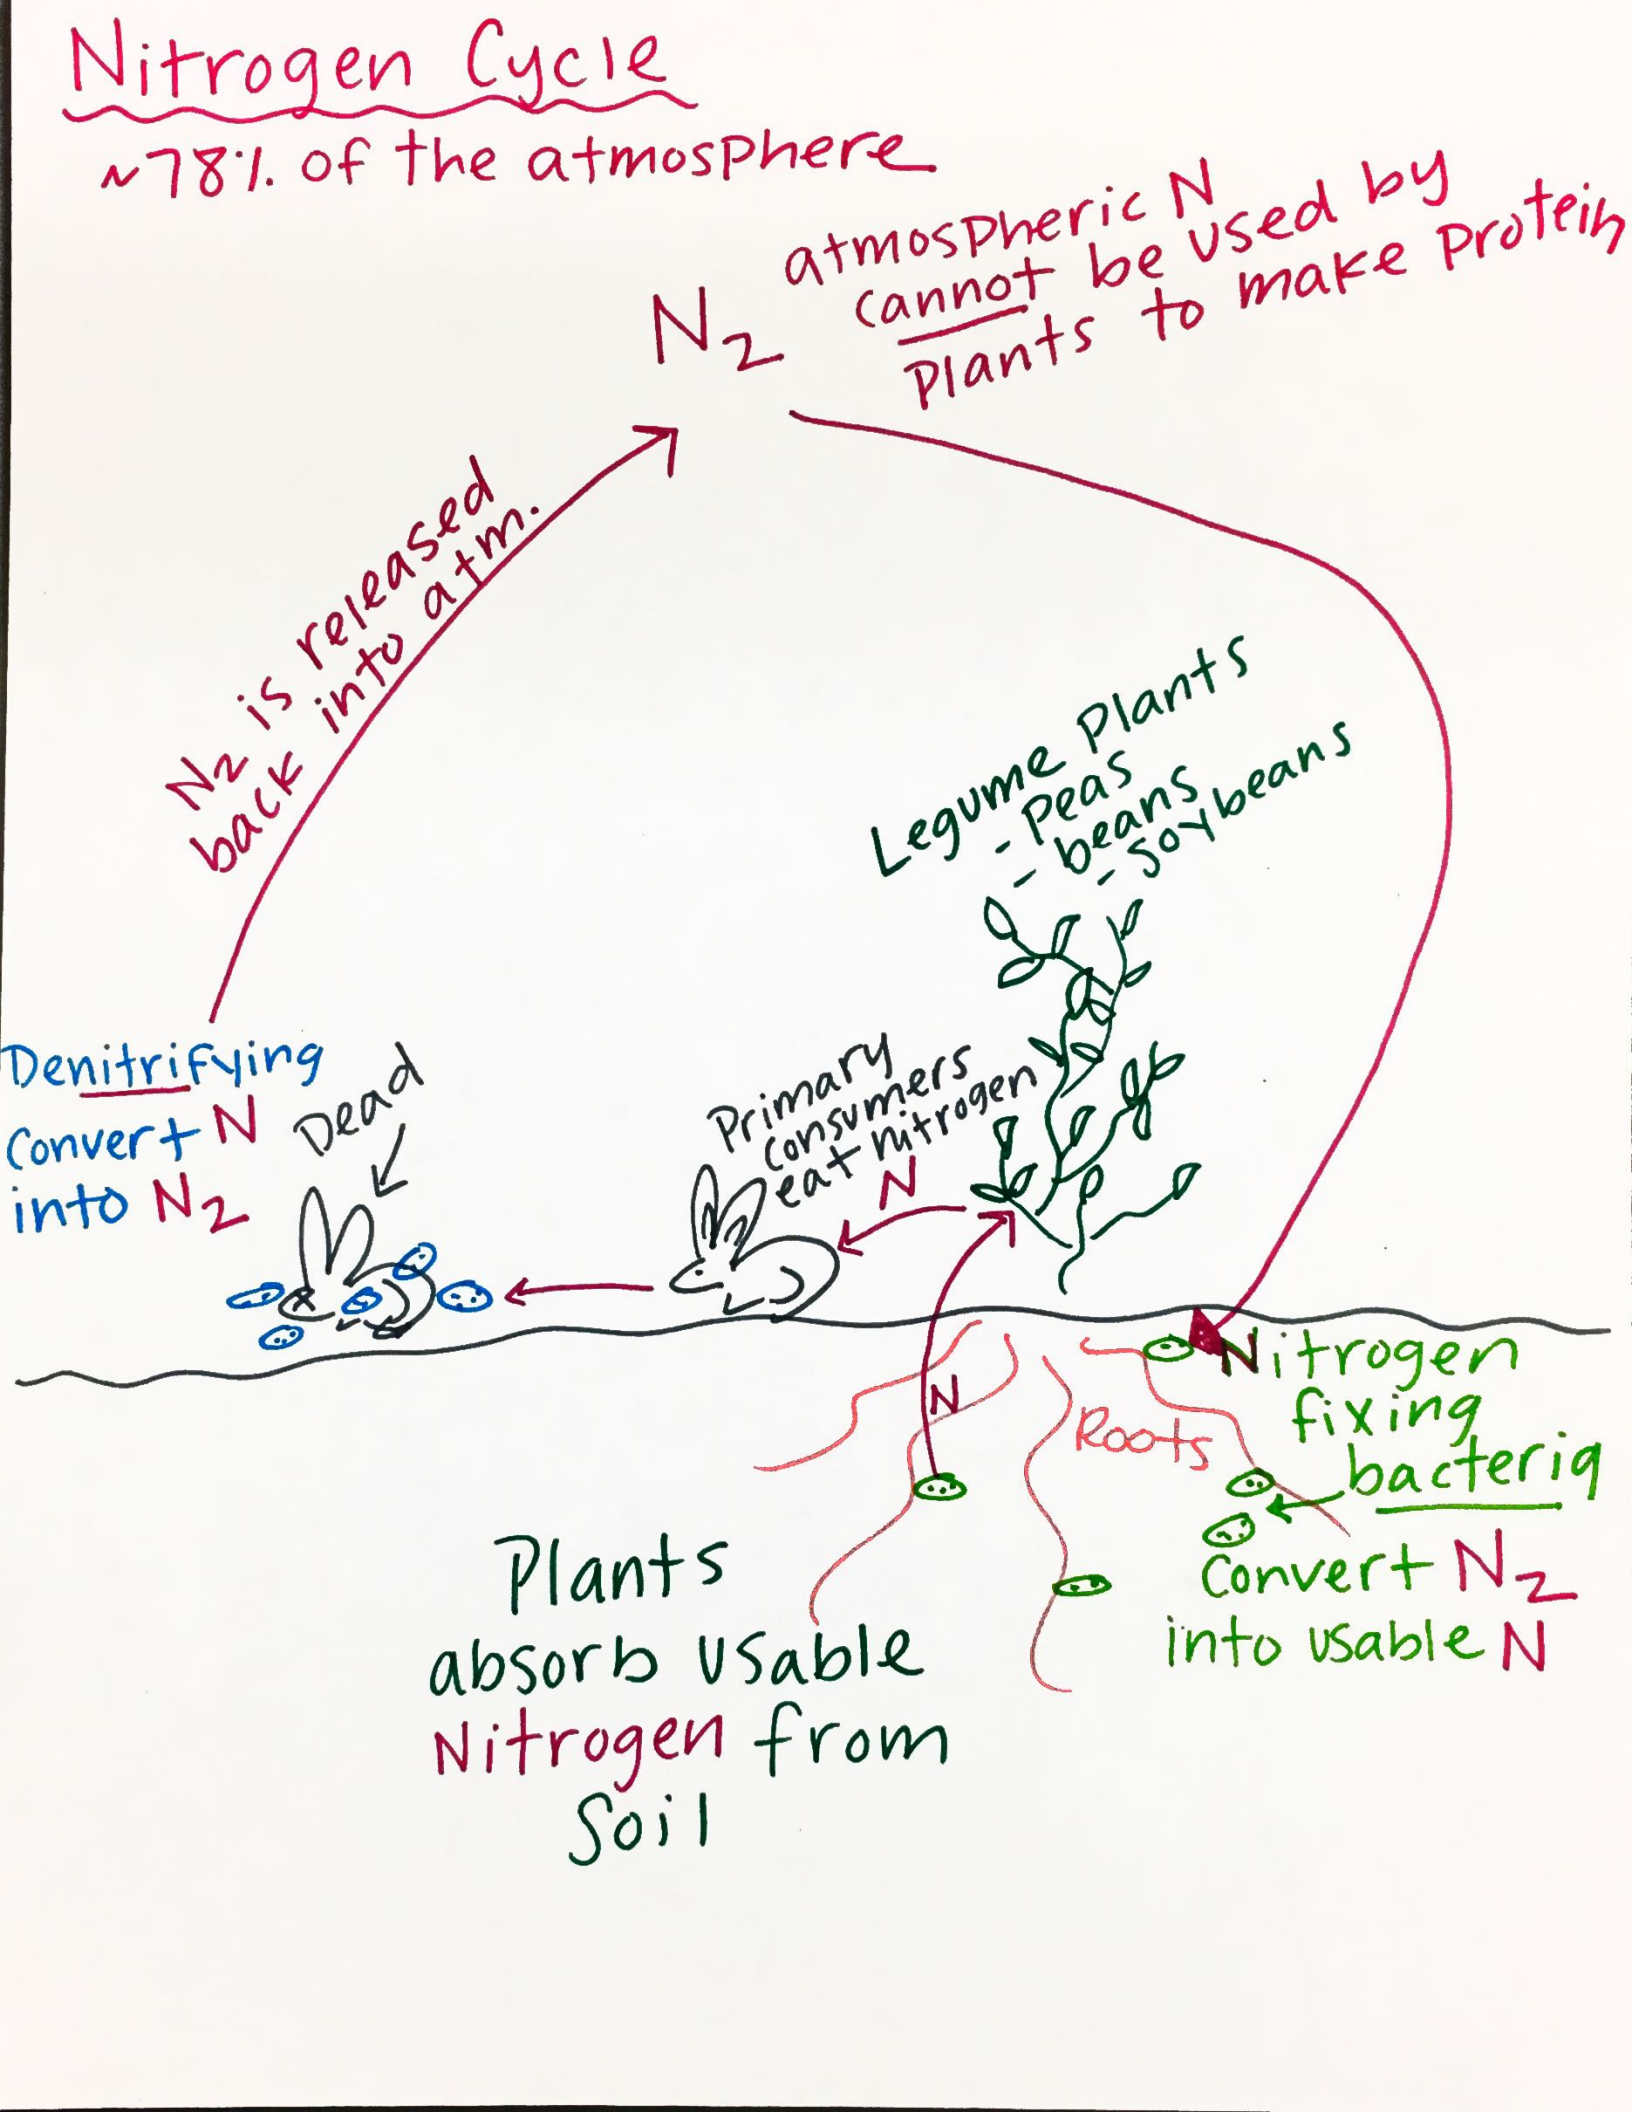 Nitrogen Cycle
~78% of the atmosphere
N2
atmospheric N
cannot be used by
Plants to make Protein
N2 is released
back into atm.
Legume Plants
- Peas
- beans
- soybeans
Denitrifying
Convert N
into N2
Dead
Primary
consumers
eat nitrogen
N
N
Roots
Nitrogen
fixing
bacteria
Convert N2
into usable N
Plants
absorb usable
Nitrogen from
Soil